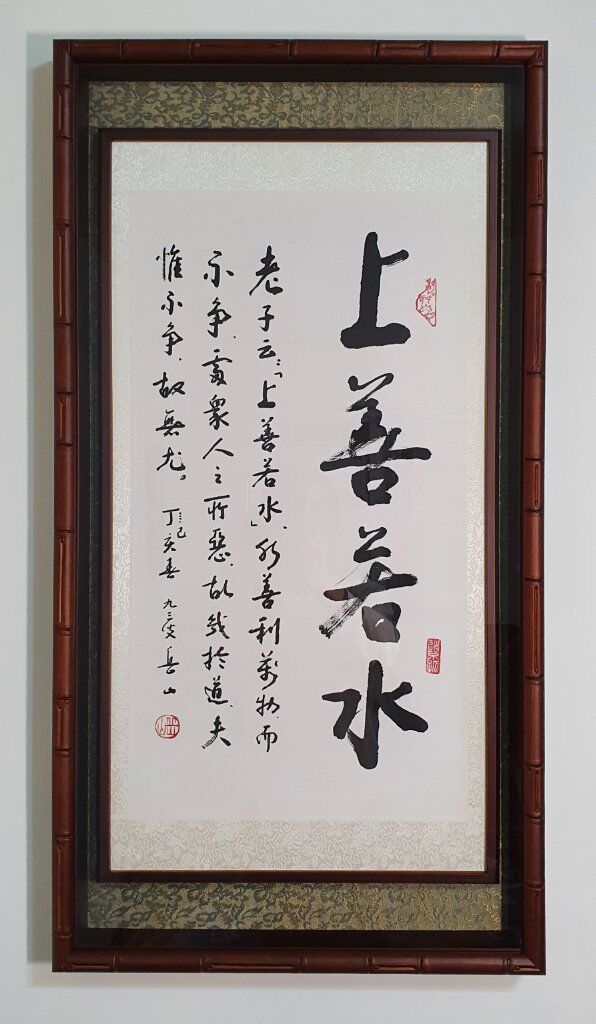 上善若水
老子云：「上善若水」、水善利萬物、而
不争、處衆人之所惡、故幾於道、夫
惟不争、故無尤。
丁己亥春 九三叟岳山